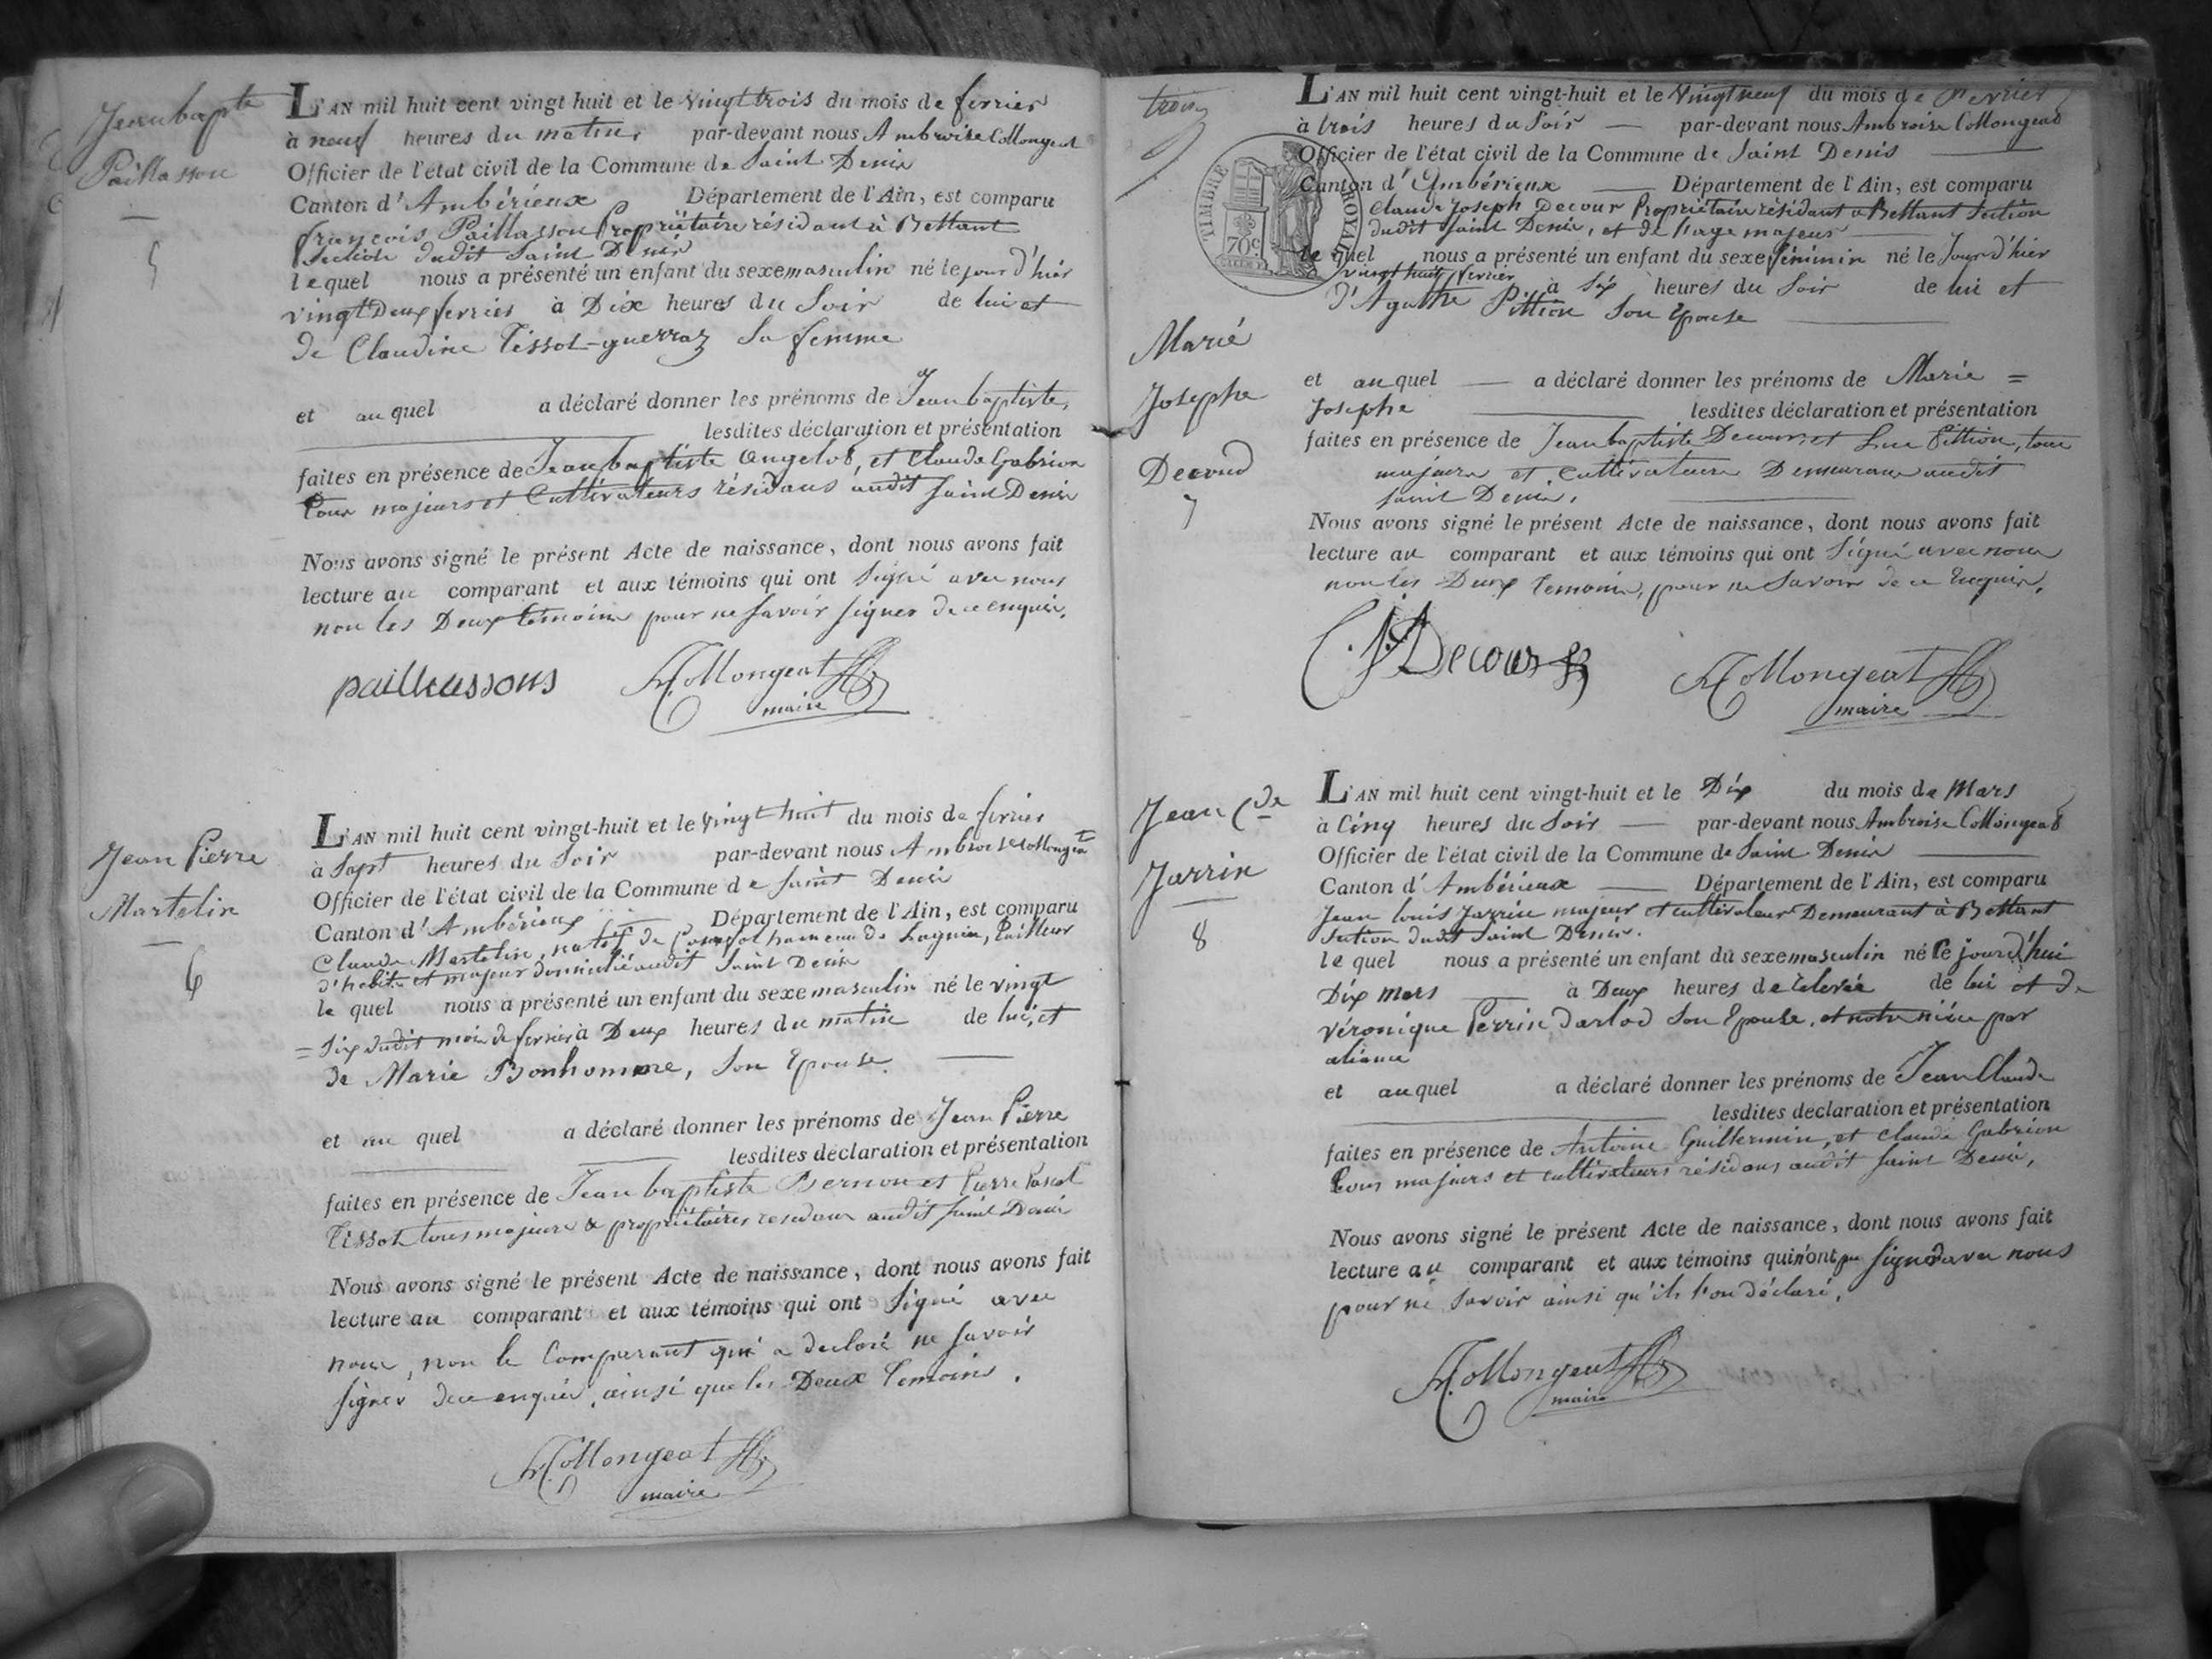 Jean bapte
Paillasson
5
L'AN mil huit cent vingt huit et le vingt trois du mois de fevrier
à neuf heures du matin par-devant nous Ambroise Collongeat
Officier de l'état civil de la Commune de Saint Denis
Canton d'Ambérieux Département de l'Ain, est comparu
françois Paillasson Propriétaire résidant à Bettant
Section dudit Saint Denis
le quel nous a présenté un enfant du sexe masculin né le jour d'hier
vingt Deux fevrier à Dix heures du Soir de lui et
de Claudine Tissot-guerraz Sa femme
et au quel a déclaré donner les prénoms de Jean baptiste,
lesdites déclaration et présentation
faites en présence de Jean baptiste Angelot, et Claude Gabrion
tous majeurs et Cultivateurs résidans audit Saint Denis
Nous avons signé le présent Acte de naissance, dont nous avons fait
lecture au comparant et aux témoins qui ont Signé avec nous
non les Deux témoins pour ne Savoir signer de ce enquis.
paillassons Collongeat
maire
Jean Pierre
Martelin
6
L'AN mil huit cent vingt-huit et le vingt huit du mois de fevrier
à Sept heures du Soir par-devant nous Ambroise Collongeat
Officier de l'état civil de la Commune de Saint Denis
Canton d'Ambérieux Département de l'Ain, est comparu
Claude Martelin, natif de hameau de Lagnieu, tailleur
d'habits et majeur domicilié audit Saint Denis
le quel nous a présenté un enfant du sexe masculin né le vingt
= Six dudit mois de fevrier à Deux heures du matin de lui, et
de Marie Bonhomme, Son Epouse.
et au quel a déclaré donner les prénoms de Jean Pierre
lesdites déclaration et présentation
faites en présence de Jean baptiste Bernou et Pierre Pascal
Tissot tous majeurs & propriétaires residans audit Saint Denis
Nous avons signé le présent Acte de naissance, dont nous avons fait
lecture au comparant et aux témoins qui ont Signé avec
nous, non le Comparant qui a declaré ne Savoir
signer de ce enquis, ainsi que les Deux témoins.
Collongeat
maire
trois
TIMBRE ROYAL
70c
L'AN mil huit cent vingt-huit et le Vingt neuf du mois de Fevrier
à trois heures du Soir par-devant nous Ambroise Collongeat
Officier de l'état civil de la Commune de Saint Denis
Canton d'Ambérieux Département de l'Ain, est comparu
Claude Joseph Decour Propriétaire résidant à Bettant Section
dudit Saint Denis, et de l'age majeur
le quel nous a présenté un enfant du sexe féminin né le Jour d'hier
vingt huit fevrier à Six heures du Soir de lui et
d'Agathe Pittion Son Epouse
Marie
Josephe
Decour
7
et au quel a déclaré donner les prénoms de Marie =
Josephe lesdites déclaration et présentation
faites en présence de Jean baptiste Decour, et Luc Pittion, tous
majeurs et Cultivateurs Demeurans audit
Saint Denis.
Nous avons signé le présent Acte de naissance, dont nous avons fait
lecture au comparant et aux témoins qui ont Signé avec nous
non les Deux témoins, pour ne Savoir de ce Enquis.
C. J. Decour Collongeat
maire
Jean Cde
Jarrin
8
L'AN mil huit cent vingt-huit et le Dix du mois de Mars
à Cinq heures du Soir par-devant nous Ambroise Collongeat
Officier de l'état civil de la Commune de Saint Denis
Canton d'Ambérieux Département de l'Ain, est comparu
Jean louis Jarrin majeur et cultivateur Demeurant à Bettant
Section dudit Saint Denis.
le quel nous a présenté un enfant du sexe masculin né le jourd'hui
Dix Mars à Deux heures de relevée de lui et de
Véronique Perrin Darlod Son Epouse, et notre niéce par
aliance
et au quel a déclaré donner les prénoms de Jean Claude
lesdites déclaration et présentation
faites en présence de Antoine Guillermin, et Claude Gabrion
tous majeurs et cultivateurs résidans audit Saint Denis,
Nous avons signé le présent Acte de naissance, dont nous avons fait
lecture au comparant et aux témoins qui n'ont pu Signer avec nous
pour ne Savoir ainsi qu'ils l'on déclaré.
Collongeat
maire